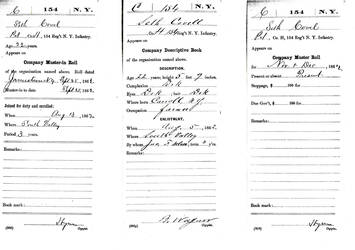 C | 154 | N.Y.
Seth Covel
Pvt., Co. H, 154 Reg't N.Y. Infantry.
Age 22 years.
Appears on
Company Muster-in Roll
of the organization named above. Roll dated
Jamestown N.Y. Sept 25, 1862.
Muster-in to date Sept 25, 1862.
Joined for duty and enrolled:
When Aug 1862
Where South Valley
Period 3 years.
Remarks:
Book mark:
Copyist.
C | 154 | N.Y.
Seth Covell
Co. H, 154 Reg't N.Y. Infantry.
Appears on
Company Descriptive Book
of the organization named above.
DESCRIPTION.
Age 22 years; height 5 feet 9 inches.
Complexion Dark
Eyes Dark; hair Dark
Where born Carroll N.Y.
Occupation Farmer
ENLISTMENT.
When Aug 1862.
Where South Valley
By whom; term 3 y'rs.
Remarks:
Copyist.
C | 154 | N.Y.
Seth Covel
Pvt, Co. H, 154 Reg't N.Y. Infantry.
Appears on
Company Muster Roll
for Nov & Dec, 1862.
Present or absent Present
Stoppage, $ 100 for
Due Gov't, $ 100 for
Remarks:
Book mark:
Copyist.